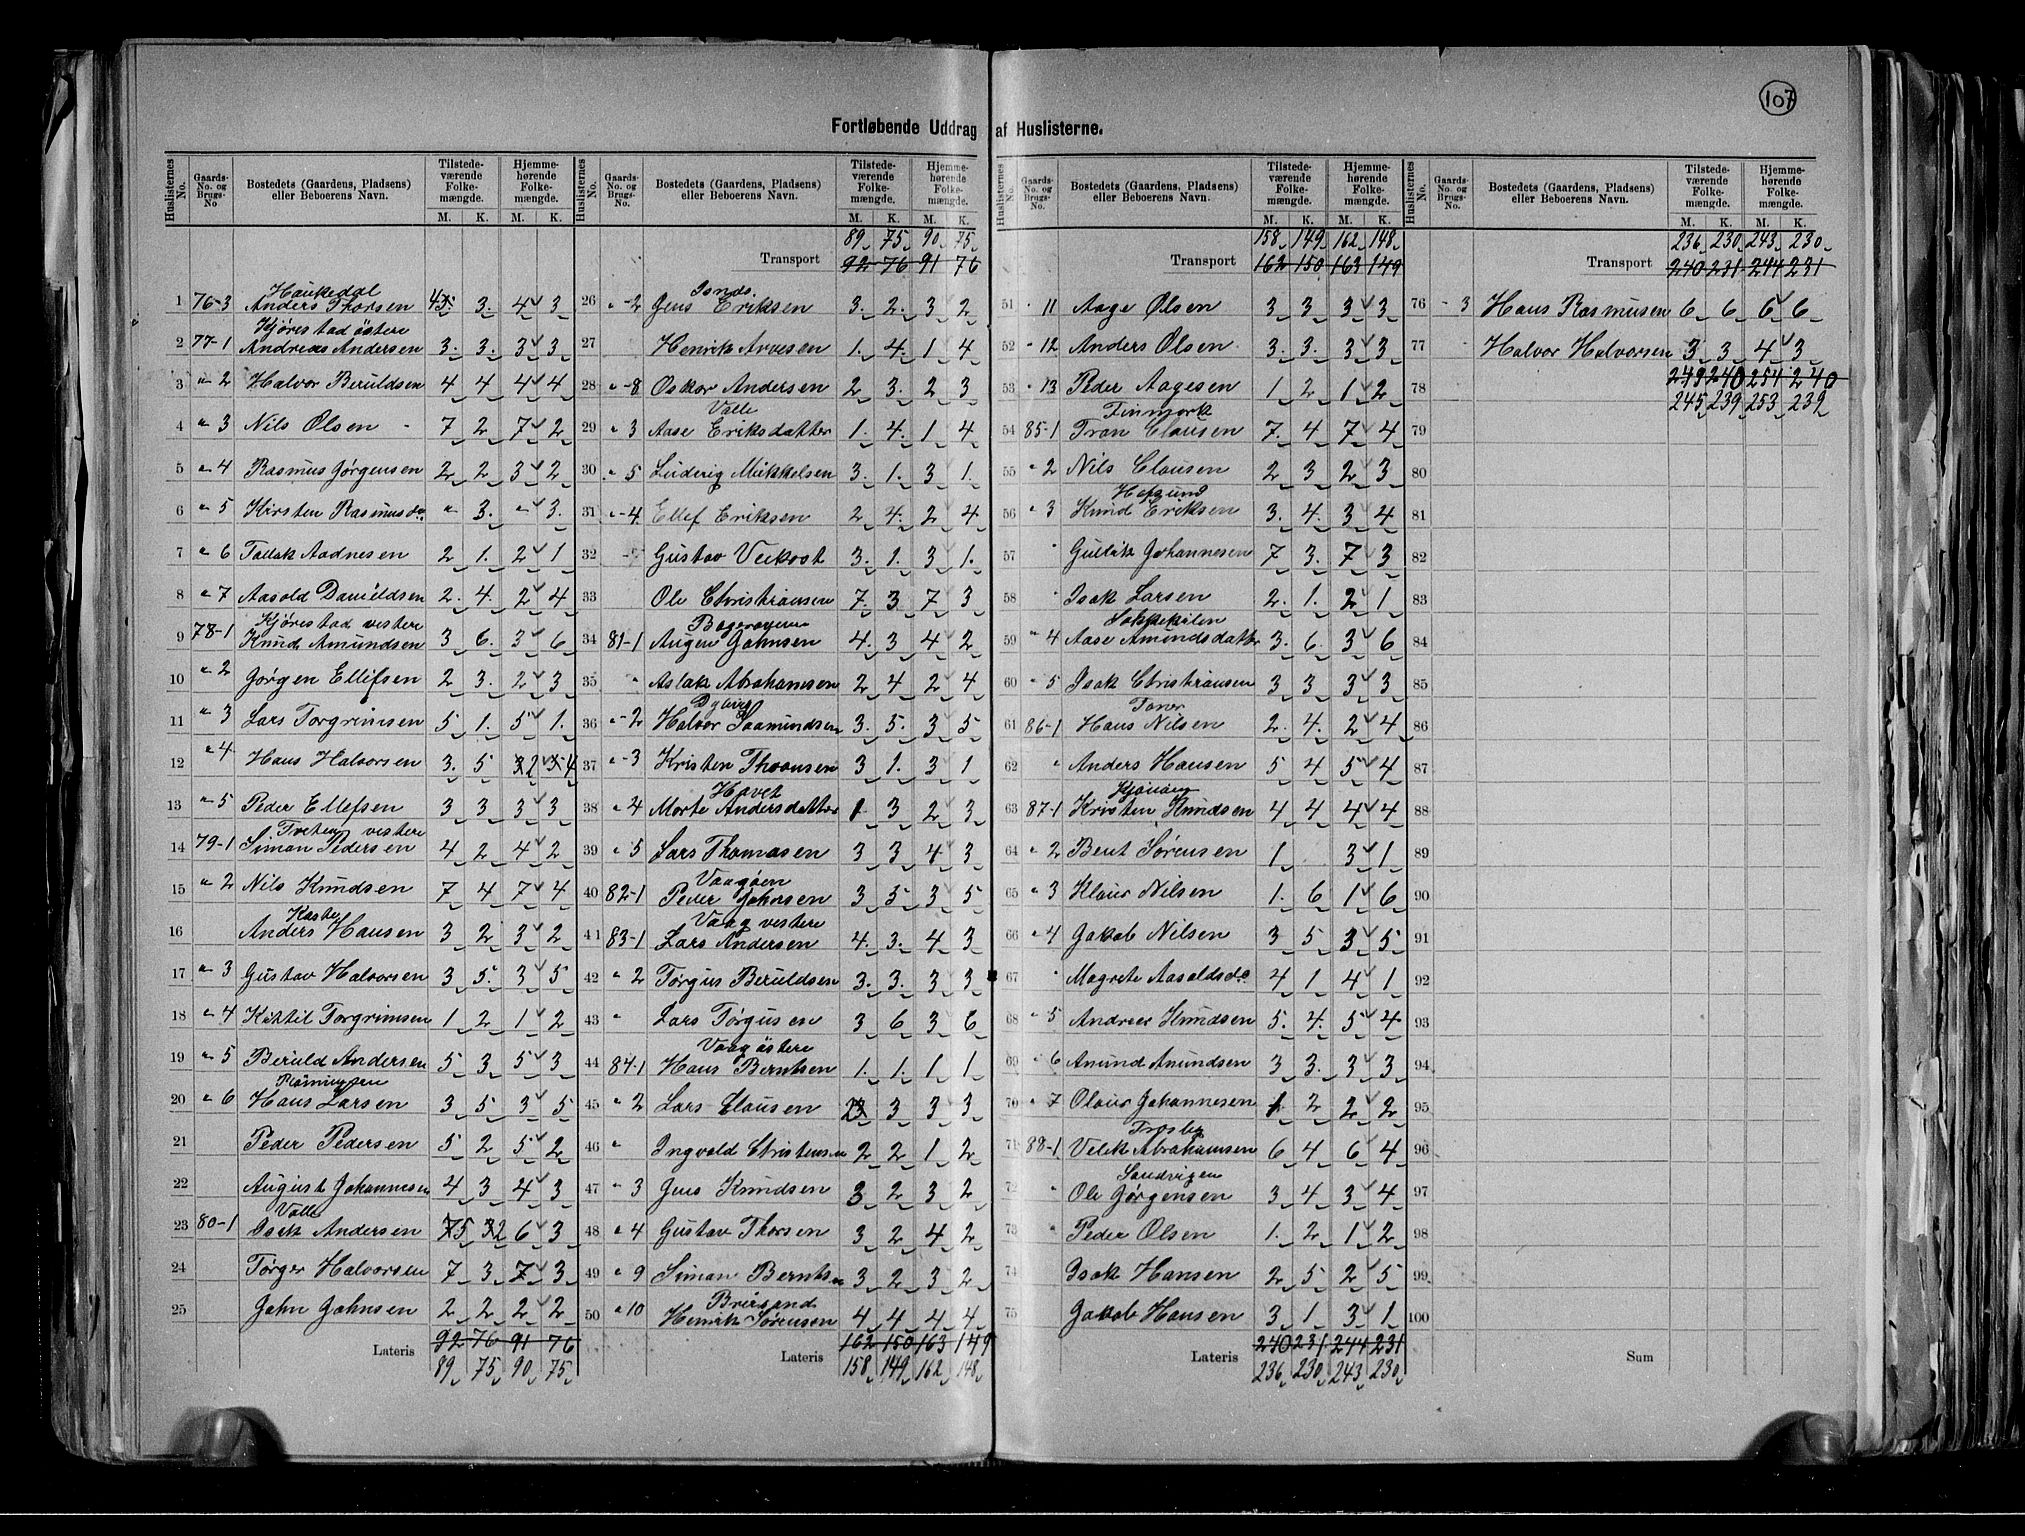 107
Fortløbende Uddrag af Huslisterne.
Huslisternes No. Gaards-No. og Brugs-No Bostedets (Gaardens, Pladsens) eller Beboerens Navn. Tilstedeværende Folkemængde. M. K. Hjemmehørende Folkemængde. M. K.
Haukedal
1 76-3 Anders Thorsen 4 3. 4 3
Kjørestad östere
2 77-1 Andreas Andersen 3. 3. 3 3
3 " 2 Halvor Beruldsen 4 4 4 4
4 " 3 Nils Olsen - 7 2 7 2
5 " 4 Rasmus Jørgensen 2 2 3 2
6 " 5 Kirsten Rasmusdr. " 3. " 3.
7 " 6 Tallak Aadnesen 2 1. 2 1
8 " 7 Aasold Danieldsen 2. 4. 2 4
Kjørestad vestere
9 78-1 Knud Amundsen 3 6. 3 6
10 " 2 Jørgen Ellefsen 2 3. 2 3
11 " 3 Lars Torgrimsen 5 1. 5 1.
12 " 4 Hans Halvorsen 3. 5 2 4
13 " 5 Peder Ellefsen 3 3 3 3
Tveten vestere
14 79-1 Simon Pedersen 4 2 4 2
15 " 2 Nils Knudsen 7 4 7 4
Kaste
16 Anders Hansen 3 2 3 2
17 " 3 Gustav Halvorsen 3 5. 3 5
18 " 4 Kittil Torgrimsen 1 2 1 2
19 " 5 Beruld Andersen 5 3 5 3
20 " 6 Hans Larsen 3 5 3 5
21 Peder Pedersen 5 2 5 2
22 August Johannesen 4 3 4 3
Valle
23 80-1 Isak Andersen 5 2 6 3
24 Tørger Halvorsen 7 3 7 3
25 John Johnsen 2 2 2 2
92 76 91 76
Lateris 89 75 90 75
Huslisternes No. Gaards-No. og Brugs-No. Bostedets (Gaardens, Pladsens) eller Beboerens Navn. Tilstedeværende Folkemængde. M. K. Hjemmehørende Folkemængde. M. K.
89 75 90 75
Transport 92 76 91 76
26 " -2 Jens Eriksen 3. 2. 3 2
27 Henrik Arvesen 1. 4. 1 4
28 " -8 Oskar Andersen 2 3. 2 3
Valle
29 " 3 Aase Eriksdatter 1. 4. 1 4
30 " 5 Luderig Mikkelsen 3. 1. 3 1.
31 " -4 Ellef Eriksen 2 4. 2 4
32 Gustav Veikost 3. 1. 3 1.
33 Ole Christiansen 7. 3 7 3
34 81-1 Augen Johnsen 4. 3 4 2
35 " Aslak Abrahamsen 2 4 2 4
36 " -2 Halvor Saamundsen 3. 5. 3 5
37 " -3 Kristen Thoansen 3 1. 3 1
Havet
38 " 4 Marte Andersdatter 1 3 2 3
39 " 5 Lars Thomasen 3 3 4 3
Vaagöen
40 82-1 Peder Johnsen 3 5 3 5
Vaag vestere
41 83-1 Lars Andersen 4. 3. 4 3
42 " 2 Torgus Beruldsen 3. 3. 3 3
43 " Lars Torgusen 3 6 3 6
Vaag östere
44 84-1 Hans Berntsen 1. 1. 1 1
45 " 2 Lars Clausen 2 3 3 3
46 " Ingvald Christensen 2 2 1 2
47 " 3 Jens Knudsen 3 2 3 2
48 " 4 Gustav Thorsen 3 2 4 2
49 " 9 Simon Berntsen 3 2 3 2
50 " 10 Henrik Sørensen 4 4 4 4
162 150 163 149
Lateris 158 149 162 148
Huslisternes No. Gaards-No. og Brugs-No. Bostedets (Gaardens, Pladsens) eller Beboerens Navn. Tilstedeværende Folkemængde. M. K. Hjemmehørende Folkemængde. M. K.
158 149 162 148
Transport 162 150 163 149
51 " 11 Aage Olsen 3 3 3 3
52 " 12 Anders Olsen 3 3. 3 3
53 " 13 Peder Aagesen 1 2 1 2
Finmark
54 85-1 Tron Clausen 7. 4 7 4
55 " 2 Nils Clausen 2 3 2 3
Hafsund
56 " 3 Knud Eriksen 3. 4. 3 4
57 " Gullik Johannesen 7 3. 7 3
58 " Isak Larsen 2. 1. 2 1
59 " 4 Aase Amundsdatter 3. 6. 3 6
60 " 5 Isak Christiansen 3 3 3 3
61 86-1 Hans Nilsen 2. 4. 2 4
62 " Anders Hansen 5 4 5 4
63 87-1 Kristen Knudsen 4 4 4 4
64 " 2 Bent Sørensen 1 3 1
65 " 3 Klaus Nilsen 1. 6 1 6
66 " 4 Jakob Nilsen 3 5 3 5
67 " Magrete Aasoldsdr. 4 1 4 1
68 " 5 Andreas Knudsen 5. 4. 5 4
69 " 6 Anund Anundsen 3 3. 3 3
70 " 7 Olaus Johannesen 1 2 2 2
Trosby
71 88-1 Velek Abrahamsen 6 4 6 4
Sandvigen
72 " Ole Jørgensen 3 4 3 4
73 " Peder Olsen 1. 2 1 2
74 Isak Hansen 2 5 2 5
75 Jakob Hansen 3 1 3 1
240 231 244 231
Lateris 236 230 243 230
Huslisternes No. Gaards-No. og Brugs-No. Bostedets (Gaardens, Pladsens) eller Beboerens Navn. Tilstedeværende Folkemængde. M. K. Hjemmehørende Folkemængde. M. K.
236 230 243 230
Transport 240 231 244 231
76 - 3 Hans Rasmusen 6 6 6 6
77 " Halvor Halvorsen 3 3 4 3
78 249 240 254 240
245 239 253 239
79
80
81
82
83
84
85
86
87
88
89
90
91
92
93
94
95
96
97
98
99
100
Sum